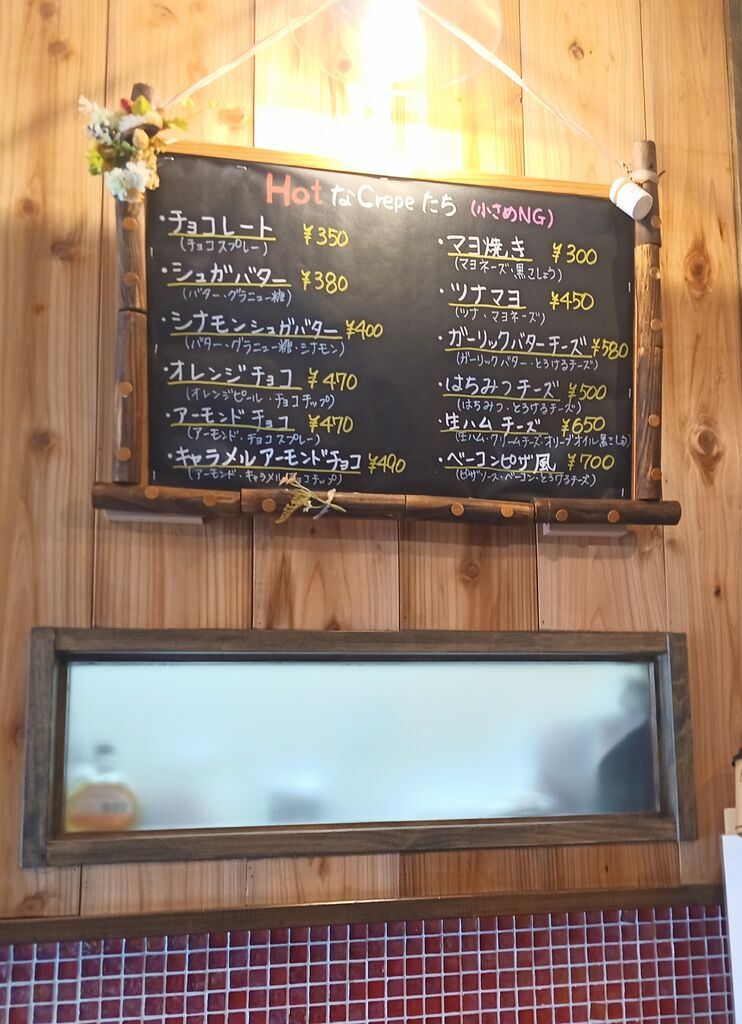 Hot なCrepeたち (小さめNG)
・チョコレート ¥350
(チョコスプレー)
・シュガバター ¥380
(バター・グラニュー糖)
・シナモンシュガバター ¥400
(バター・グラニュー糖・シナモン)
・オレンジチョコ ¥470
(オレンジピール・チョコチップ)
・アーモンドチョコ ¥470
(アーモンド・チョコスプレー)
・キャラメルアーモンドチョコ ¥490
(アーモンド・キャラメル・チョコチップ)
・マヨ焼き ¥300
(マヨネーズ・黒こしょう)
・ツナマヨ ¥450
(ツナ・マヨネーズ)
・ガーリックバターチーズ ¥580
(ガーリックバター・とろけるチーズ)
・はちみつチーズ ¥500
(はちみつ・とろけるチーズ)
・生ハムチーズ ¥650
(生ハム・クリームチーズ・オリーブオイル・黒こしょう)
・ベーコンピザ風 ¥700
(ピザソース・ベーコン・とろけるチーズ)